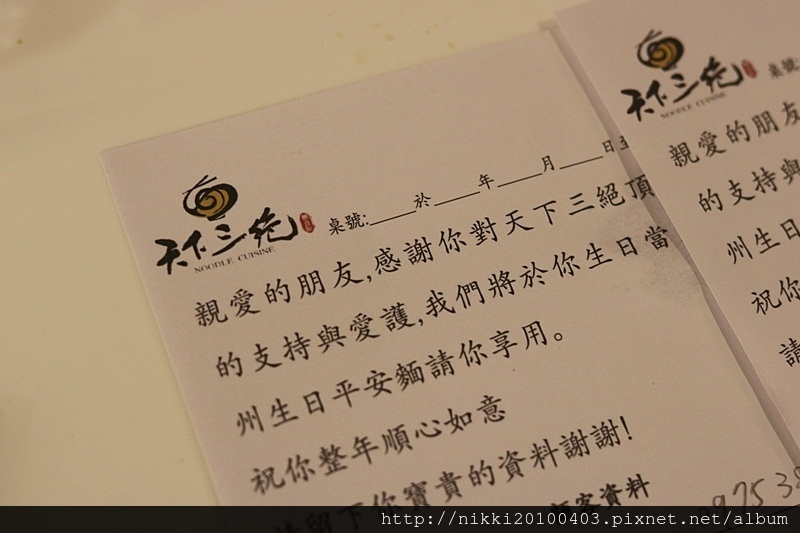 天下三絕
NOODLE CUISINE
桌號:____於____年____月____日至
親愛的朋友,感謝你對天下三絕頂
的支持與愛護,我們將於你生日當
州生日平安麵請你享用。
祝你整年順心如意
請留下你寶貴的資料謝謝!
客資料
0975 38
天下三絕
NOODLE CUISINE
桌號
親愛的朋友
的支持與
州生日
祝你
請
http://nikki20100403.pixnet.net/album